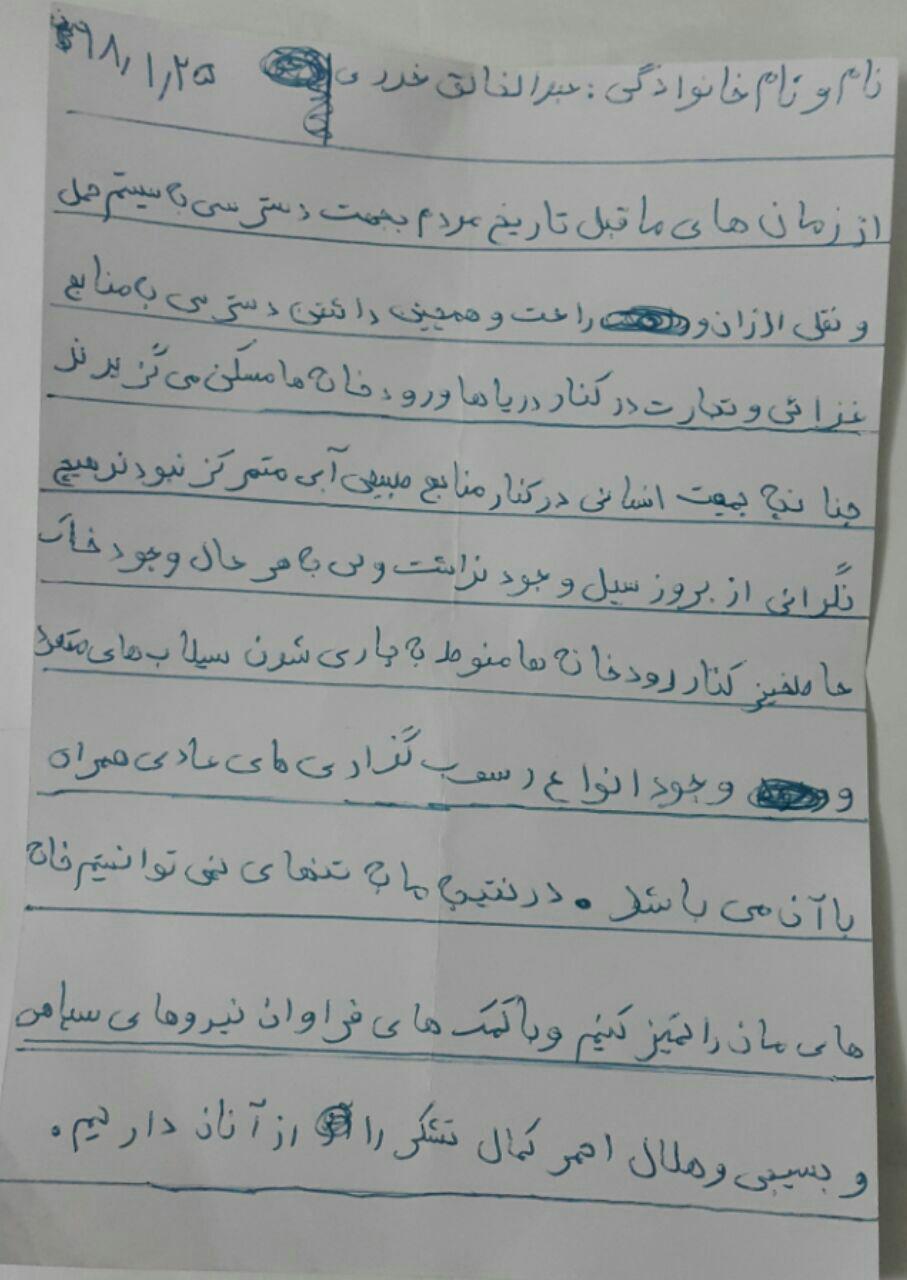 نام و نام خانوادگی: عبدالخالق ۹۸/۱/۲۵
از زمان های ما قبل تاریخ مردم بجهت دسترسی با سیستم حمل
و نقل ارزان و راحت و همچنین داشتن دسترسی با منابع
غزائی و تجارت در کنار دریاها و رودخانه ها مسکن می گزیدند
چنانچه جمعیت انسانی در کنار منابع طبیعی آبی متمرکز نبودند هیچ
نگرانی از بروز سیل وجود نداشت ولی به هر حال وجود خاک
حاصلخیز کنار رودخانه ها منوط به جاری شدن سیلاب های متعدد
و وجود انواع رسوب گذاری های عادی همراه
با آن می باشد. در نتیجه ما به تنهای نمی توانیم خانه
های مان را تمیز کنیم و با کمک های فراوان نیروهای سپاهی
و بسیجی و هلال احمر کمال تشکر را از آنان داریم.